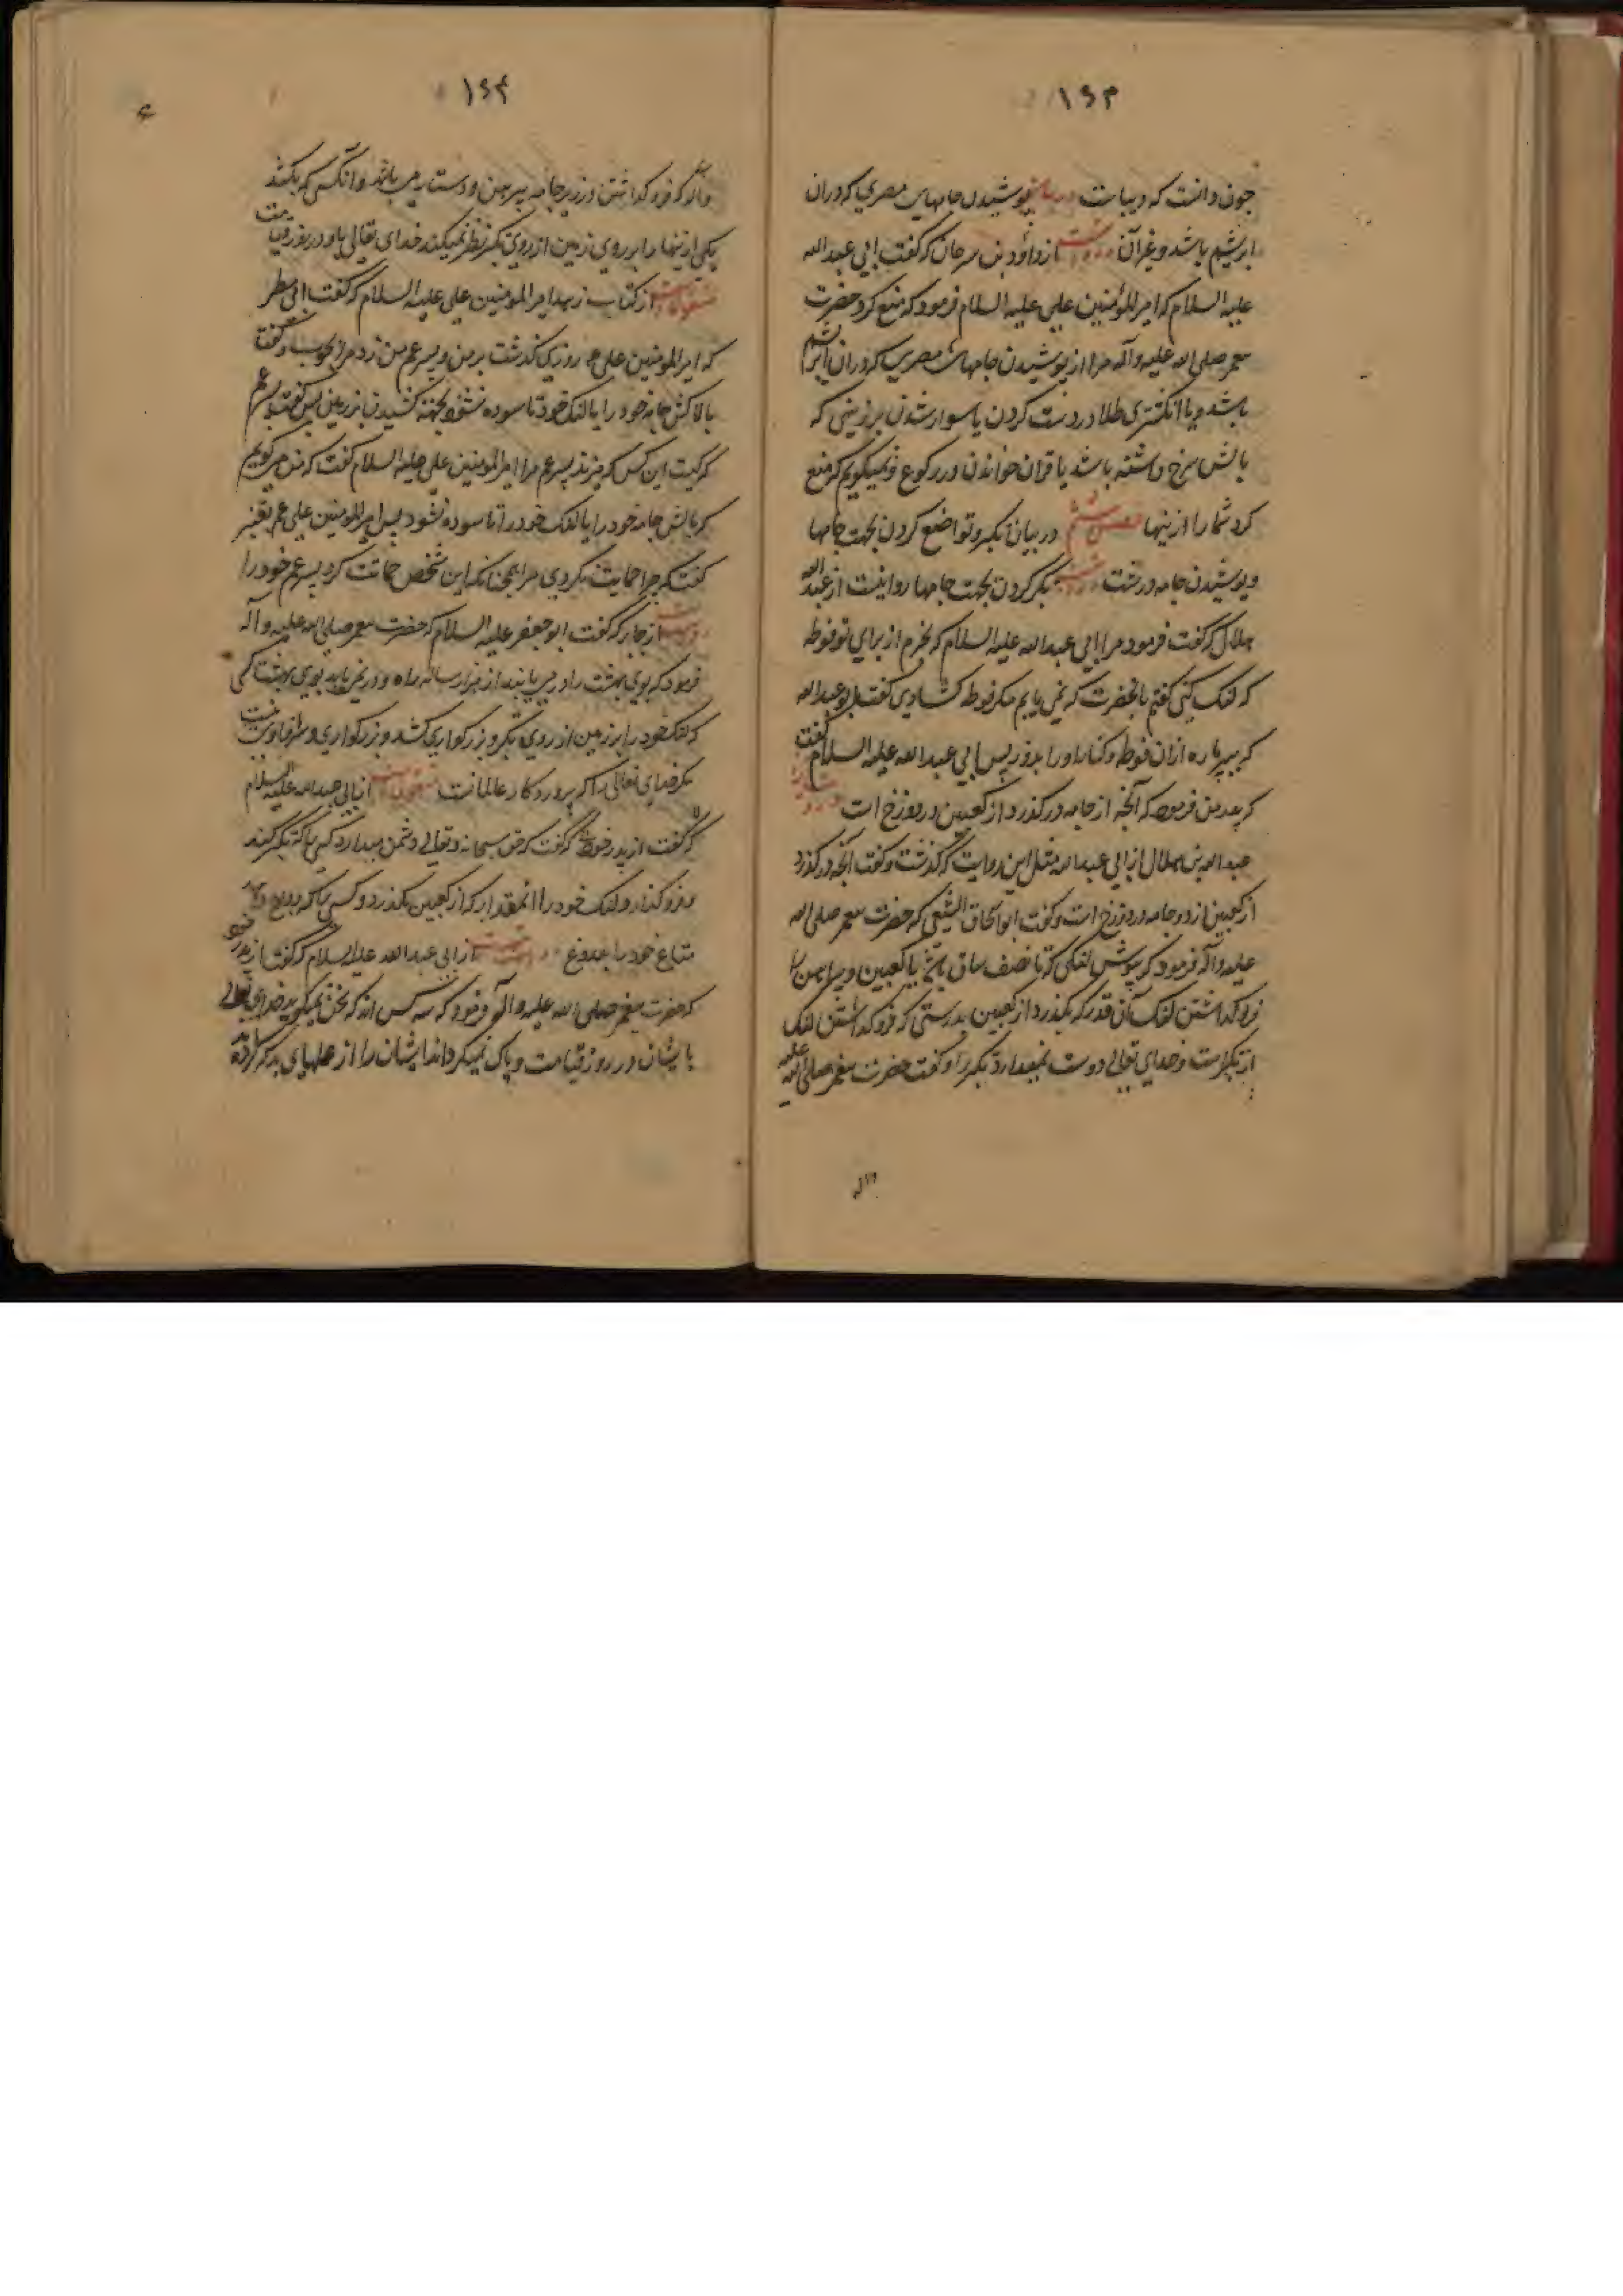 ۱۶۳
جون دانست که دیباست در بیان پوشیدن جامهای مصری که دران
ابریشم باشد و غیر آن روایتست از داود بن سرحان که گفت ابی عبدالله
علیه السلام که امیر المؤمنین علی علیه السلام فرمود که منع کرد حضرت
پیغمبر صلی الله علیه و آله مرا از پوشیدن جامهای مصری که دران ابریشم
باشد و یا انکشتری طلا در دست کردن یا سوار شدن بر زینی که
بالش سرخ داشته باشد یا قران خواندن در رکوع و نمیکویم که منع
کرد شما را ازینها فصل ششم در بیان تکبر و تواضع کردن بجهت جامها
و پوشیدن جامه درشت تکبر کردن بجهت جامها روایتست از عبد الله
هلال که گفت فرمود مرا ابی عبدالله علیه السلام که بخرم از برای او فوطه
که لنک کنی گفتم بانحضرت که نمی یابم مکر فوطه کشادی گفت ابو عبدالله
که ببر پاره ازان فوطه و کنار او را بدوز پس ابی عبدالله علیه السلام گفت
که پدر من فرمود که آنچه از جامه درکذرد از کعبین در دوزخ است
عبدالله بن هلال از ابی عبدالله مثل این روایت که گذشت و گفت آنچه درکذرد
از کعبین از دو جامه در دوزخ است و گفت ابو اسحاق که حضرت پیغمبر صلی الله
علیه و آله فرمود که بپوش لنکی که تا نصف ساق یا تا کعبین و پیراهن را
فروکذاشتن لنک آن قدر که بکذرد از کعبین بدرستی که فروکذاشتن لنک
از تکبر است و خدای تعالی دوست نمیدارد تکبر را و گفت حضرت پیغمبر صلی الله علیه
واله
۱۶۴
و آله که فروکذاشتن در زیر جامه پیرهن و دستار می باشد و آنکس که بکشد
یکی ازینها را بر روی زمین از روی تکبر نظر نمیکند خدای تعالی باو در روز قیامت
منقولست از کتاب زهد امیر المومنین علی علیه السلام که گفت ابی مطر
که امیر المومنین علی ع روزی گذشت بر من و پسر عم من زد مرا بچوب و گفت
بالا کش جامه خود را یا لنک خود تا سوده نشود بجهته کشیدن بزمین پس گفت پسر عم
که کیست این کس که میزند پسر عم مرا امیر المومنین علی علیه السلام گفت که من میگویم
که بالا کش جامه خود را یا لنک خود را تا سوده نشود پس امیر المومنین علی ع بقنبر
گفت که چرا حمایت نکردی مرا چنانکه این شخص حمایت کرد پسر عم خود را
روایتست از جابر که گفت ابو جعفر علیه السلام که حضرت پیغمبر صلی الله علیه و آله
فرمود که بوی بهشت را در می یابند از هزار ساله راه و در نمی یابد بوی بهشت کسی
که لنک خود را بر زمین از روی تکبر و بزرکواری کشد و بزرکواری سزاوار نیست
مکر خدای تعالی را که پروردکار عالمیانست منقولست از ابی عبدالله علیه السلام
که گفت از پدر خود که گفت که حق سبحانه و تعالی دشمن میدارد کسی را که تکبر کند
و فروکذارد لنک خود را آنمقدار که از کعبین بکذرد و کسی را که
متاع خود را بدروغ روایتست از ابی عبدالله علیه السلام که گفت از پدر خود
که حضرت پیغمبر صلی الله علیه و آله فرمود که سه کس اند که سخن نمیکوید خدای تعالی
با ایشان در روز قیامت و پاک نمیکرداند ایشان را از عملهای بد که کرده